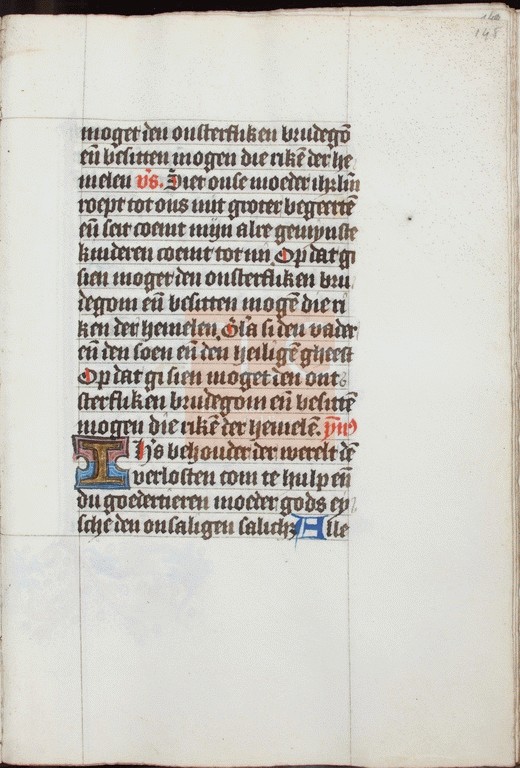 148
148
moget den onsterfliken brudegō
eñ besitten mogen die rikē der he
melen v̄s. Siet onse moeder ihrlm̄
roept tot ons mit groter begeertē
eñ seit coemt mijn alre gemynste
kinderen coemt tot mi Op dat gi
sien moget den onsterfliken bru
degom eñ besitten mogē die ri
ken der hemelen Gl'a si den vader
eñ den soen eñ den heiligē gheest
Op dat gi sien moget den on
sterfliken brudegom eñ besittē
mogen die rikē der hemelē.
Ihs behouder der werelt dē
verlosten com te hulp eñ
du goedertieren moeder gods ey
sche den onsaligen salich Alle